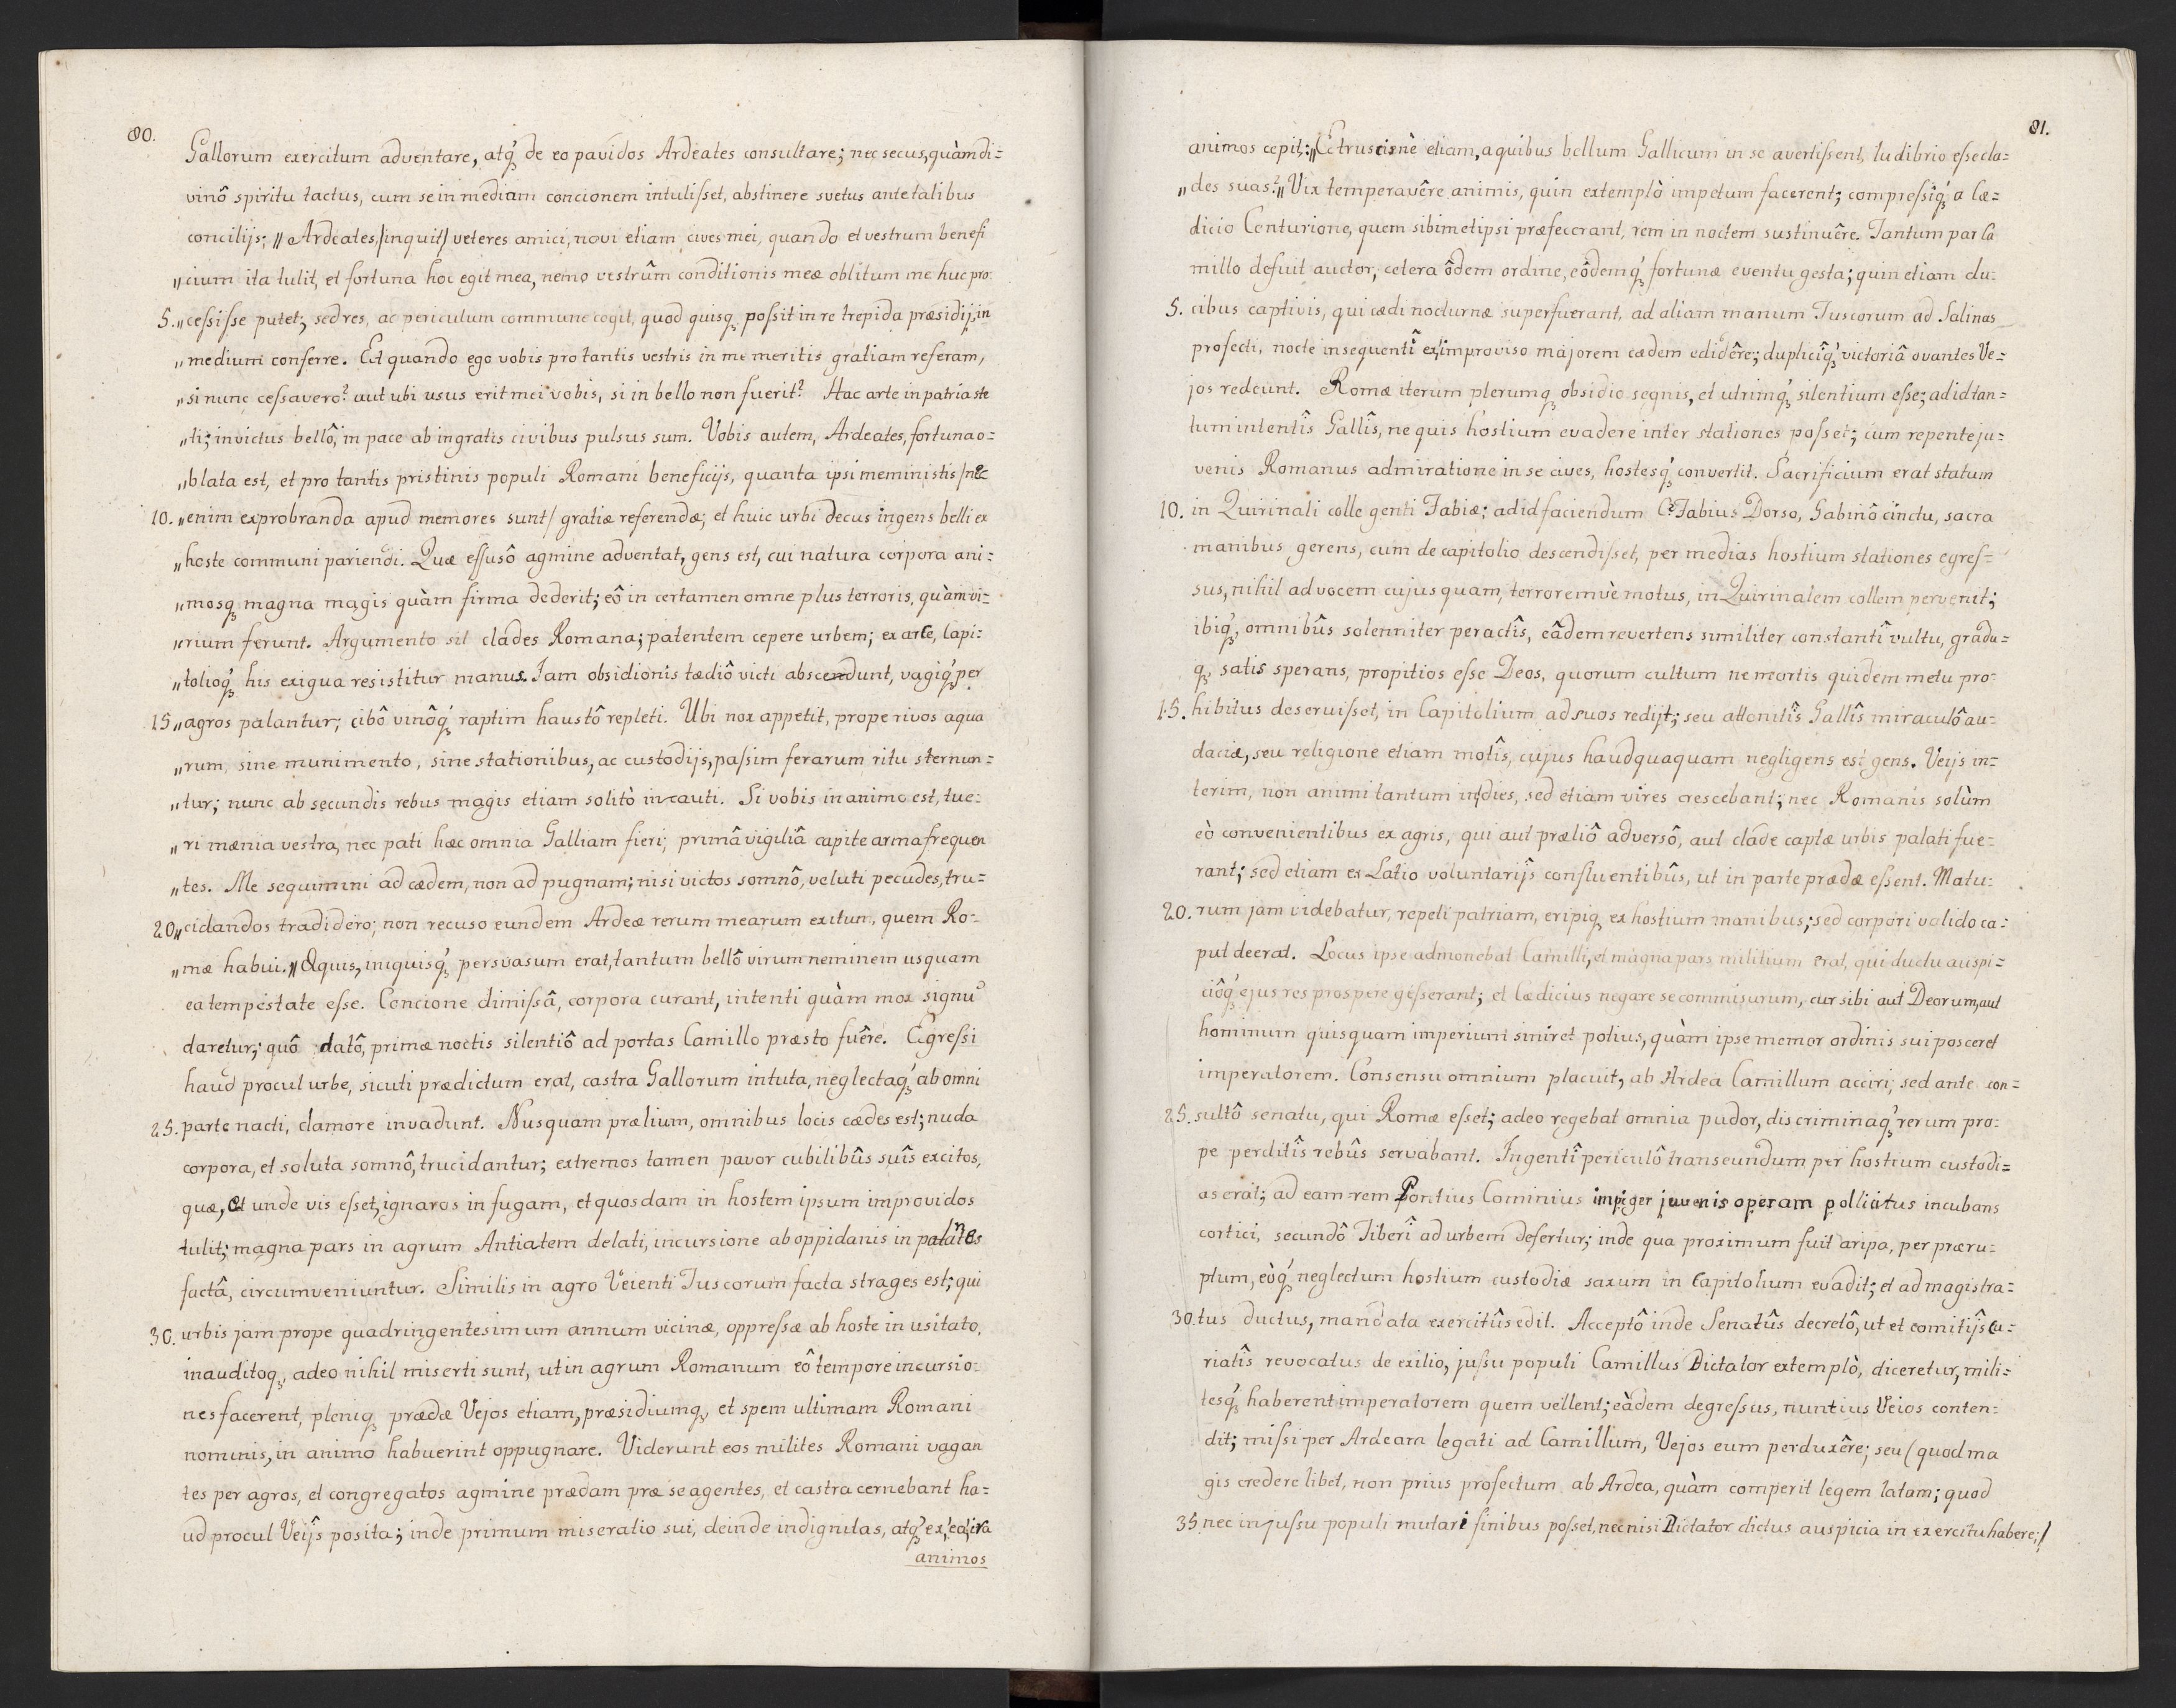 80.
Gallorum exercitum adventare, atq́ de eo pavidos Ardeates consultare; nec secus, quàm di=
vinô spiritu tactus, cum se in mediam concionem intulisset, abstinere svetus ante talibus
concilijs; „ Ardeates, /inquit/ veteres amici, novi etiam cives mei, quando et vestrum benefi
„cium ita tulit, et fortuna hoc egit mea, nemo vestrûm conditionis meæ oblitum me huc pro:
5. „cessisse putet; sed res, ac periculum commune cogit, quod quisq, possit in re trepida præsidij, in
„medium conferre. Et quando ego vobis pro tantis vestris in me meritis gratiam referam,
„si nunc cessavero? aut ubi usus erit mei vobis, si in bello non fuerit? Hac arte in patria ste
„ti; invictus bellô, in pace ab ingratis civibus pulsus sum. Vobis autem, Ardeates, fortuna o=
„blata est, et pro tantis pristinis populi Romani beneficijs, quanta ipsi meministis /nec
10. „enim exprobranda apud memores sunt/ gratiæ referendæ; et huic urbi decus ingens belli ex
„hoste communi pariendi. Quæ effusô agmine adventat, gens est, cui natura corpora ani=
„mosq magna magis quàm firma dederit; eô in certamen omne plus terroris, quàm vi=
„rium ferunt. Argumento sit clades Romana; patentem cepere urbem; ex arce, Capi=
„tolioq́ his exigua resistitur manus. Jam obsidionis tædiô victi abscendunt, vagiq́ per
15 „agros palantur; cibô vinôq́ raptim haustô repleti. Ubi nox appetit, prope rivos aqua
„rum, sine munimento, sine stationibus, ac custodijs, passim ferarum ritu sternun=
„tur; nunc ab secundis rebus magis etiam solitò incauti. Si vobis in animo est, tue=
„ri mænia vestra, nec pati hæc omnia Galliam fieri; primâ vigiliâ capite arma frequen
„tes. Me sequimini ad cædem, non ad pugnam; nisi victos somnô, veluti pecudes, tru=
20„cidandos tradidero; non recuso eundem Ardeæ rerum mearum exitum, quem Ro=
„mæ habui. „ Æquis, iniquisq́ persvasum erat, tantum bellô virum neminem usquam
ea tempestate esse. Concione dimissâ, corpora curant, intenti quàm mox signũ
daretur; quô datô, primæ noctis silentiô ad portas Camillo præsto fuêre. Egressi
haud procul urbe, sicuti prædictum erat, castra Gallorum intuta, neglectaq́ ab omni
25. parte nacti, clamore invadunt. Nusquam prælium, omnibus locis cædes est; nuda
corpora, et soluta somnô, trucidantur; extremos tamen pavor cubilibûs suîs excitos,
quæ, et unde vis esset, ignaros in fugam, et quosdam in hostem ipsum improvidos
tulit; magna pars in agrum Antiatem delati, incursione ab oppidanis in palantes
factâ, circumveniuntur. Similis in agro Veienti Tuscorum facta strages est; qui
30. urbis jam prope quadringentesimum annum vicinæ, oppressæ ab hoste inusitato,
inauditoq, adeo nihil miserti sunt, ut in agrum Romanum eô tempore incursio=
nes facerent, pleniq prædæ Vejos etiam, præsidiumq, et spem ultimam Romani
nominis, in animo habuerint oppugnare. Viderunt eos milites Romani vagan
tes per agros, et congregatos agmine prædam præ se agentes, et castra cernebant ha=
ud procul Veijs posita; inde primum miseratio sui, deinde indignitas, atq́ ex eâ ira
animos
81.
animos cepit: „ Etruscisnè etiam, a quibus bellum Gallicum in se avertissent, ludibrio esse cla=
„des suas? „ Vix temperavêre animis, quin extemplò impetum facerent; compressiq́ a Cæ=
dicio Centurione, quem sibimetipsi præfecerant, rem in noctem sustinuêre. Tantum par Ca
millo defuit auctor, cetera ôdem ordine, eôdemq́ fortunæ eventu gesta; quin etiam du=
5. cibus captivis, qui cædi nocturnæ superfuerant, ad aliam manum Tuscorum ad Salinas
profecti, nocte insequentî ex improviso majorem cædem edidêre; dupliciq́ victoriâ ovantes Ve=
jos redeunt. Romæ iterum plerumq obsidio segnis, et utrimq́ silentium esse; ad id tan=
tum intentîs Gallîs, ne quis hostium evadere inter stationes posset; cum repente ju=
venis Romanus admiratione in se cives, hostesq́ convertit. Sacrificium erat statum
10. in Quirinali colle genti Fabiæ; ad id faciendum C. Fabius Dorso, Gabinô cinctu, sacra
manibus gerens, cum de capitolio descendisset, per medias hostium stationes egres=
sus, nihil ad vocem cujusquam, terroremvè motus, in Quirinalem collem pervenit;
ibiq́, omnibûs solenniter peractîs, eâdem revertens similiter constantî vultu, gradu=
q, satis sperans, propitios esse Deos, quorum cultum ne mortis quidem metu pro=
15. hibitus deseruisset, in Capitolium ad suos redijt; seu attonitîs Gallîs miraculô au=
daciæ, seu religione etiam motîs, cujus haudquaquam negligens est gens. Veijs in=
terim, non animi tantum in dies, sed etiam vires crescebant; nec Romanis solùm
eò convenientibus ex agris, qui aut præliô adversô, aut clade captæ urbis palati fue=
rant; sed etiam ex Latio voluntarijs confluentibûs, ut in parte prædæ essent. Matu=
20. rum jam videbatur, repeti patriam, eripiq ex hostium manibus; sed corpori valido ca=
put deerat. Locus ipse admonebat Camilli, et magna pars militium erat, qui ductu auspi=
ciôq́ ejus res prospere gesserant; et Cædicius negare se commisurum, cur sibi aut Deorum, aut
hominum quisquam imperium finiret potius, quàm ipse memor ordinis sui posceret
imperatorem. Consensu omnium placuit, ab Ardea Camillum acciri; sed ante con=
25. sultô senatu, qui Romæ esset; adeo regebat omnia pudor, discriminaq́ rerum pro=
pe perditîs rebûs servabant. Ingentî periculô transeundum per hostium custodi=
as erat; ad eam rem Pontius Cominius impiger juvenis operam pollicitus incubans
cortici, secundô Tiberî ad urbem defertur; inde qua proximum fuit a ripa, per præru=
ptum, eòq́ neglectum hostium custodiæ saxum in Capitolium evadit; et ad magistra=
30. tus ductus, mandata exercitûs edit. Acceptô inde Senatûs decretô, ut et comitijs Cu=
riatîs revocatus de exilio, jussu populi Camillus Dictator extemplò, diceretur, mili=
tesq́ haberent imperatorem quem vellent; eâdem degressus, nuntius Veios conten=
dit; missi per Ardeam legati ad Camillum, Vejos eum perduxêre; seu (quod ma
gis credere libet, non prius profectum ab Ardea, quàm comperit legem latam; quod
35 nec injussu populi mutari finibus posset, nec nisi Dictator dictus auspicia in exercitu habere;/